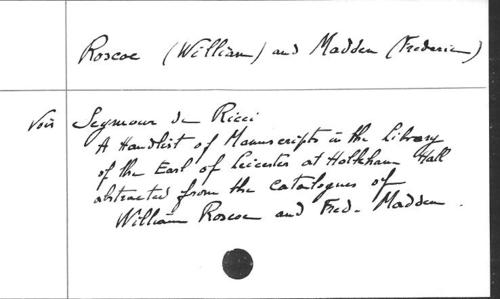 Roscoe (William) and Madden (Frederic)
Voir Seymour de Ricci
A Handlist of Manuscripts in the Library
of the Earl of Leicester at Holkham Hall
abstracted from the catalogues of
William Roscoe and Fred. Madden.